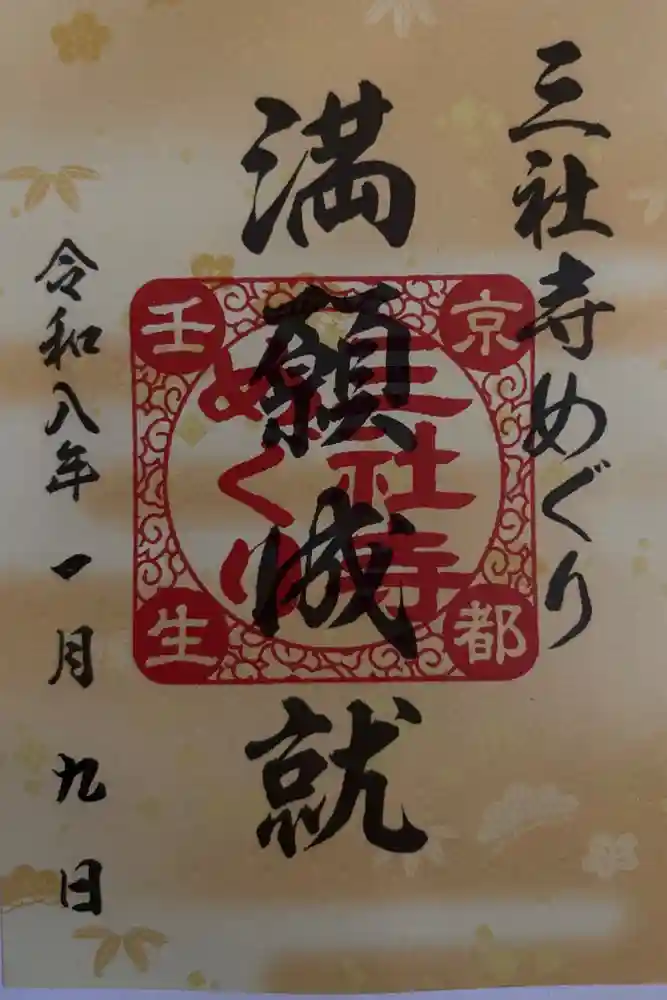 三社寺めぐり
満願成就
京都
壬生
三社寺
めぐり
令和八年一月九日